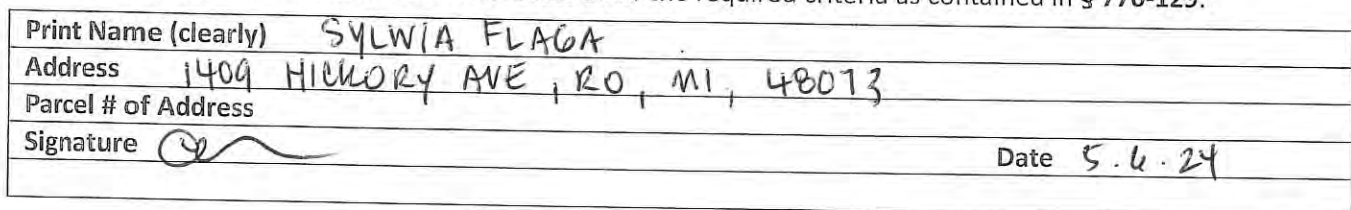 the required criteria as contained in § 770-129.
Print Name (clearly) SYLWIA FLAGA
Address 1409 HICKORY AVE, RO, MI, 48073
Parcel # of Address
Signature
Date 5.6.24